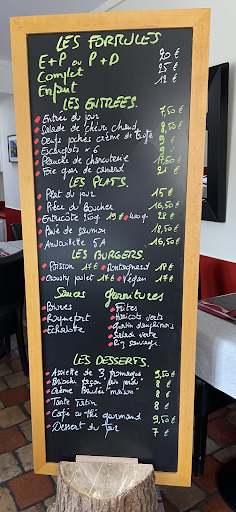 LES FORMULES
E+P ou P+D 20 €
Complet 25 €
Enfant 12 €
LES ENTREES
Entrée du jour 7,50 €
Salade de chèvre chaud 8,50 €
Oeufs pochés crème de 9 €
Escargots x 6 9 €
Planche de charcuterie 17,50 €
Foie gras de canard 21 €
LES PLATS.
Plat du jour 15 €
Pièce du Boucher 16,50 €
Entrecôte 19 € 28 €
Pavé de saumon 18,50 €
Andouillette 5A 16,50 €
LES BURGERS.
Poisson 17 € Montagnard 18 €
Crousty poulet 17 € Végan 17 €
Sauces Garnitures
Poivre Frites
Roquefort Haricots verts
Echalote Gratin dauphinois
Salade verte
Riz sauvage
LES DESSERTS.
Assiette de 3 fromages 9,50 €
Brioche façon pain perdu 8 €
Crème Brulée maison 8 €
Tarte Tatin 8 €
Café ou thé gourmand 9,50 €
Dessert du jour 7 €